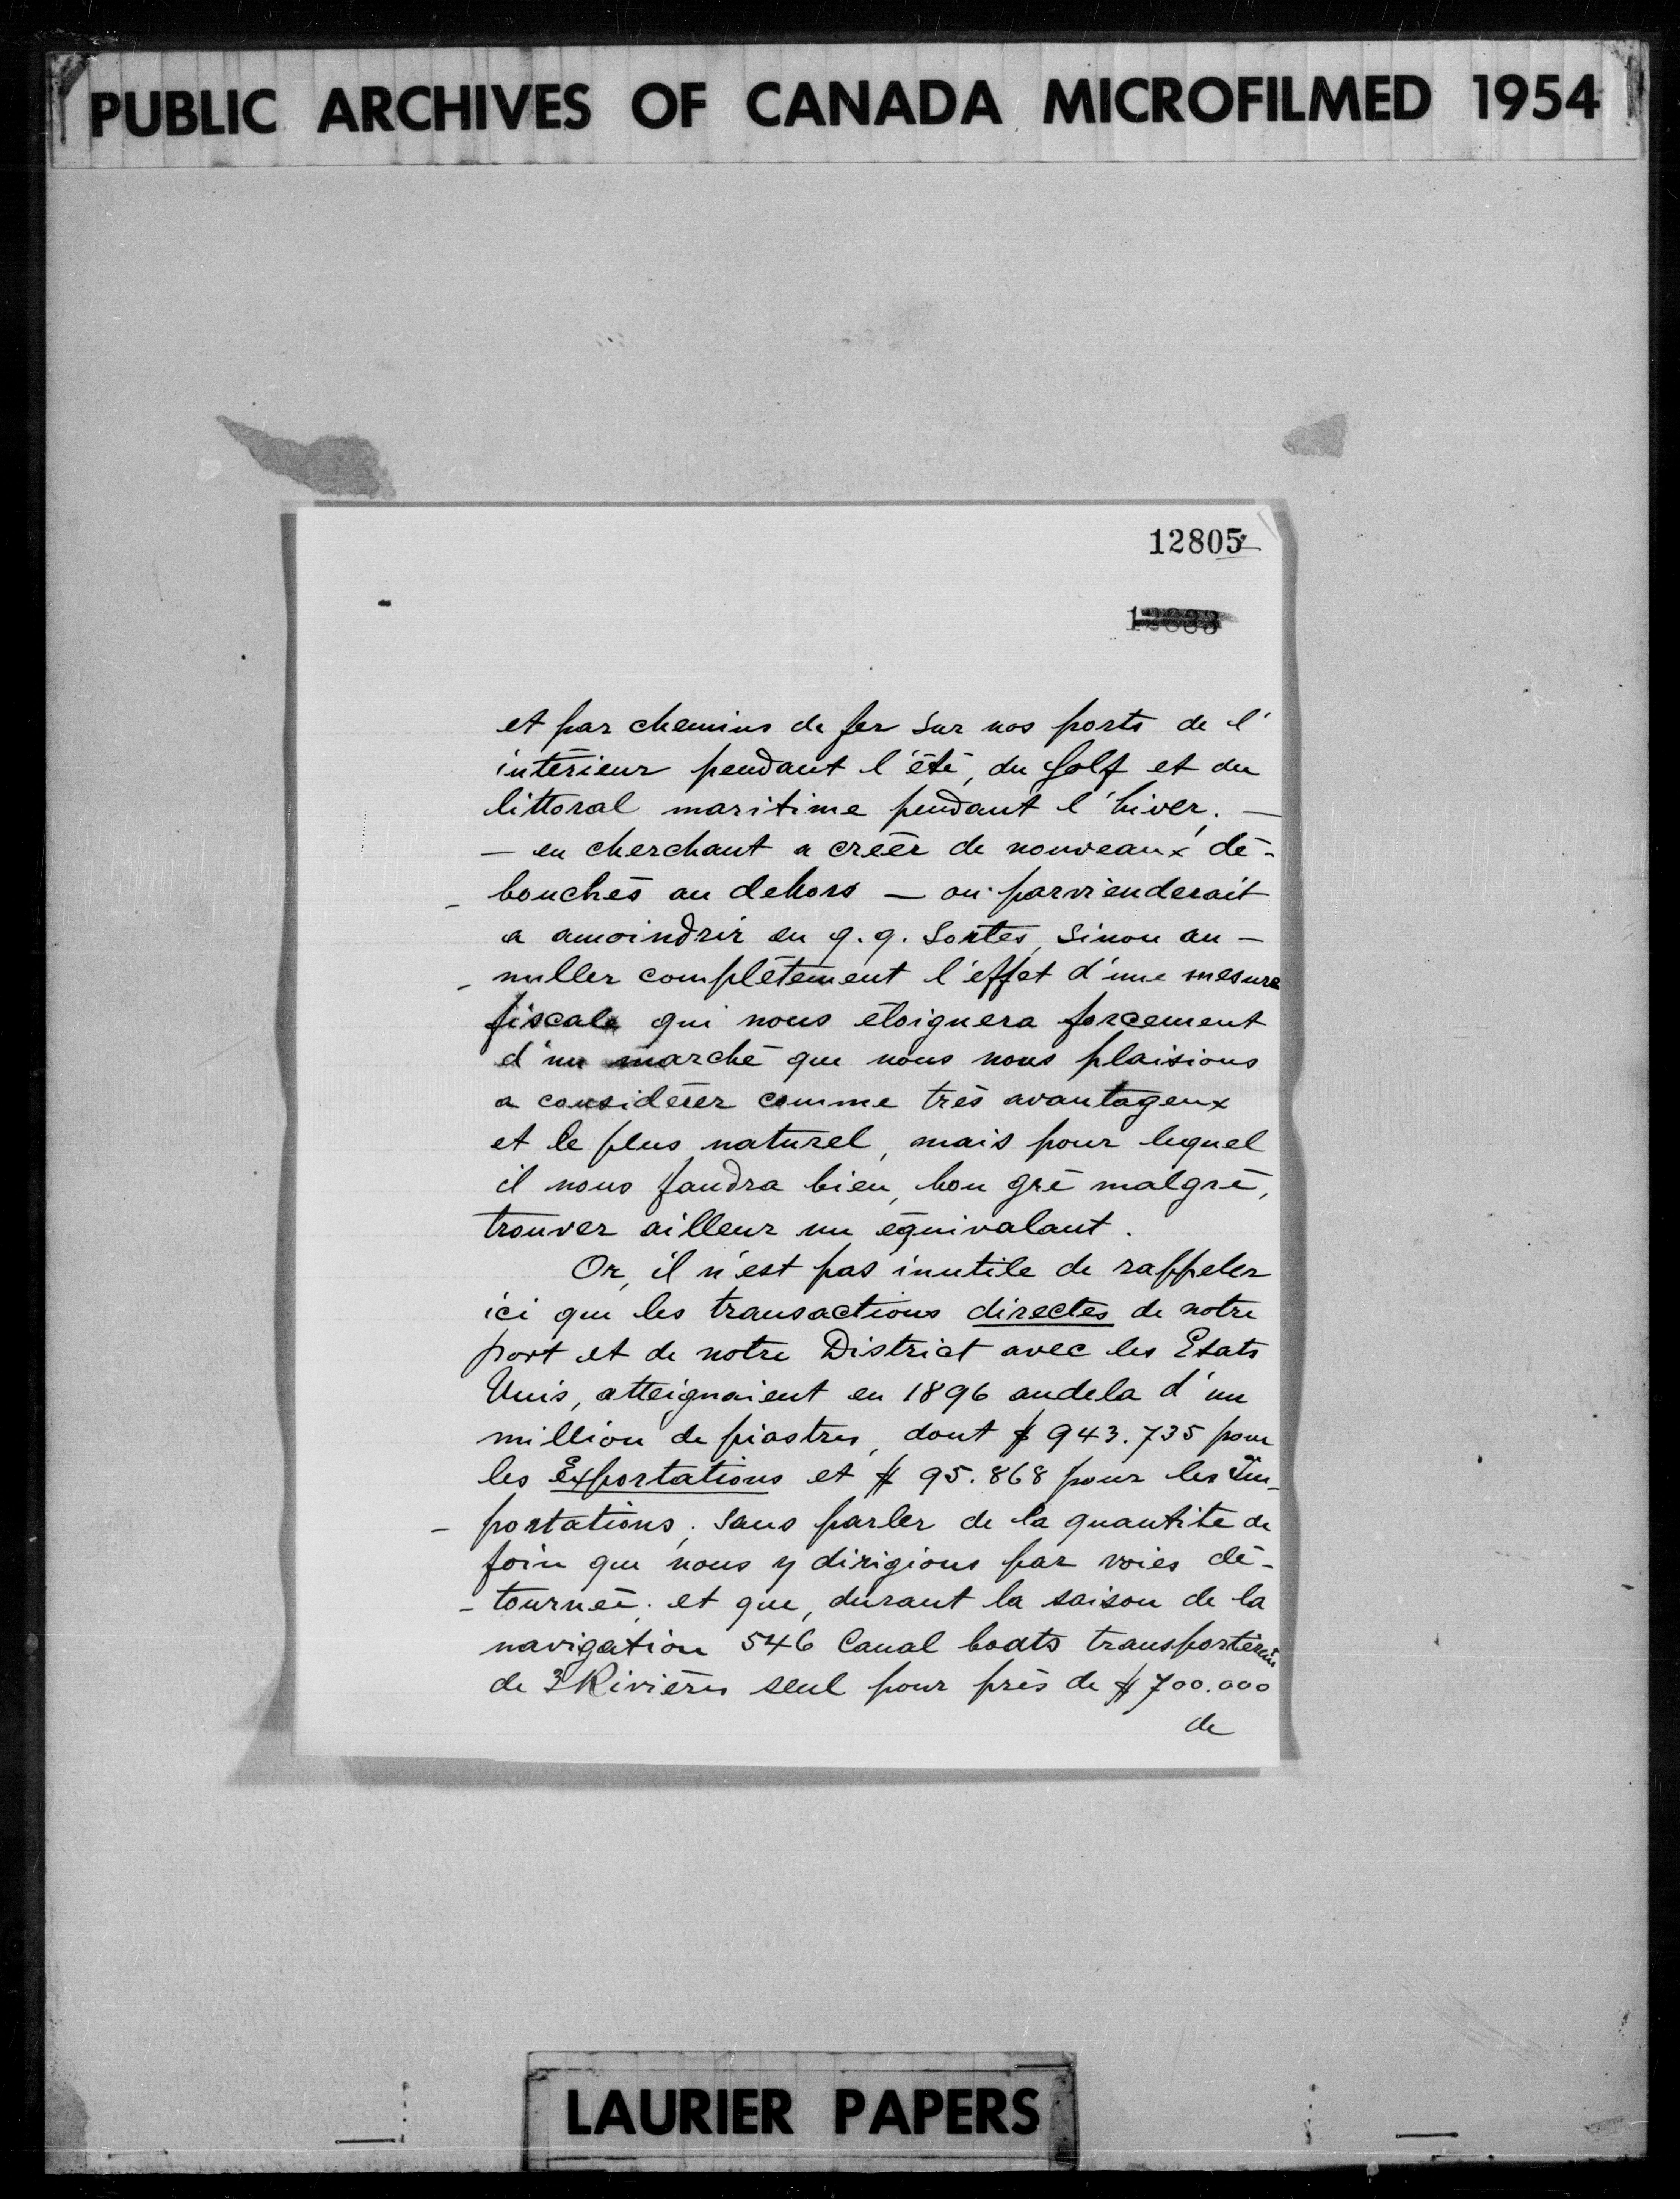 PUBLIC ARCHIVES OF CANADA MICROFILMED 1954
12805
12883
et par chemins de fer sur nos ports de l'
intérieur pendant l'été, du Golf et du
littoral maritime pendant l'hiver. —
— en cherchant a créer de nouveaux dé-
- bouchés au dehors — on parvienderait
a amoindrir en q.q. sortes, sinon an-
- nuller complétement l'effet d'une mesure
fiscale qui nous éloignera forcement
d'un marché que nous nous plaisions
a considérer comme très avantageux
et le plus naturel, mais pour lequel
il nous faudra bien, bon gré malgré,
trouver ailleur un équivalant.
Or, il n'est pas inutile de rappeler
ici que les transactions directes de notre
port et de notre District avec les Etats
Unis, atteignaient en 1896 audela d'un
million de piastres, dont $ 943.735 pour
les Exportations et $ 95.868 pour les Im-
- portations; sans parler de la quantité de
foin que nous y dirigions par voies dé-
- tourneé; et que, durant la saison de la
navigation 546 Canal boats transportèrent
de 3 Rivières seul pour près de $ 700.000
de
LAURIER PAPERS